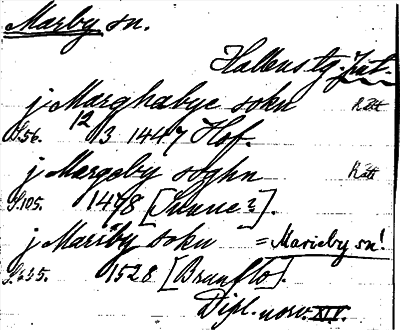 Marby sn.
Hallens tg. Jmt.
j Marghabye sokn Rätt
S. 56. 12/3 1447 Hof.
j Margeby soghn Rätt
S. 105. 1478 [Sunne?].
j Mariby sokn = Marieby sn!
1528 [Brunflo].
Dipl. norv. XIV.